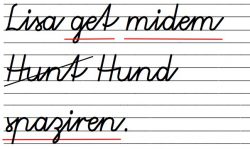 Lisa get midem
Hunt Hund
spaziren.